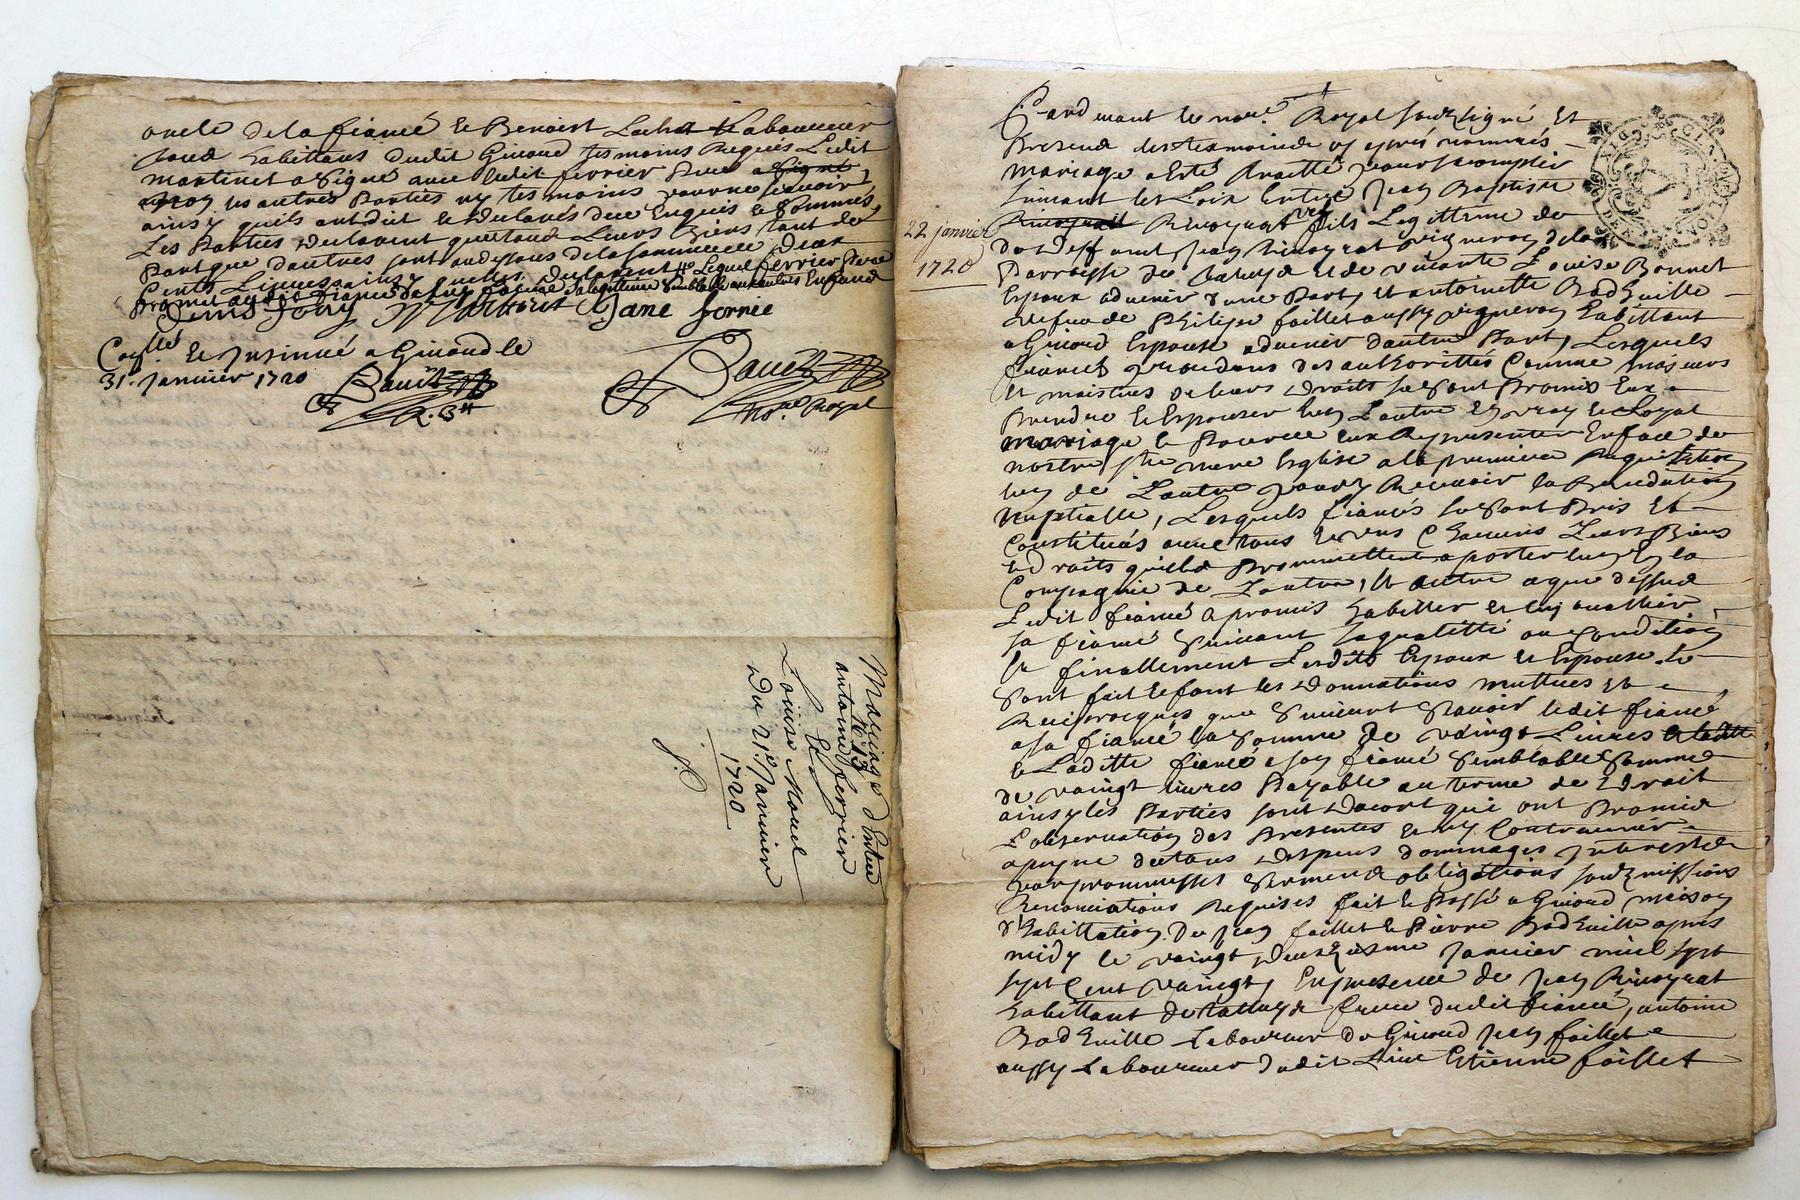 oncle de la fiancé et Benoist Laboureur
tous habittans dudit Giuord tesmoins Requis Ledit
martinet a signé auec ledit ferrier pere a signé
non les autres Parties ny tesmoins pour ne scauoir,
ainsy quils ont dit et declarés de ce Enquis et sommés,
Les Parties declarent que tous Leurs biens tant de
Part que dautres sont au dessous de la somme de deux
Cents Liures declarent Lequel ferrier Pere
promet audit semblable
Jane ferrie
Coll.é Et Insinué a Giuord le
31.e Januier 1720
No.re Royal
Mariage d'Entre
antoine ferrier
Et
Louise Morel
Du 21.e Januier
1720
22 januier
1720
Pardeuant le no.re Royal soubzsigné Et
Presens les tesmoins cy apres nommés
mariage a Esté traitté pour s'acomplir
suiuant les Loix Entre Jean Baptiste
Rinoyrat fils Legittime de
deffunt Jean Rinoyrat vigneron de la
Parroisse de et de viuante Louise Bonnet
Espoux aduenir d'une Part, Et antoinette Badheuille
vefue de Philipe faillet aussy vigneron habittant
a Giuord Espouse aduenir dautre Part, Lesquels
fiancés procedans des authorittés Comme majeurs
Et maistres de leurs Droits se sont Promis Eux
Prendre Et Espouser Lun Lautre En vray Et Loyal
mariage Et Pour ce Eux Representer En face de
nostre ste mere Esglise a la premiere Requisition
lun de Lautre pour y Receuoir la Benediction
nuptialle, Lesquels fiancés se sont Pris Et
Constitués auec tous Et vns Chacuns Leurs Biens
et Droits quils Promettent aporter lun En la
Compagnie de Lautre, Et outre a que dessus
Ledit fiancé a promis habiller Et Enjouailler
sa fiancé suiuant sa qualitté ou Condition
Et finallement Lesdits Espoux Et Espouse se
sont fait Et font les Donnations mutues Et
Reciproques que suiuent scauoir ledit fiancé
a sa fiancé la somme de vaingt Liures
Et Laditte fiancé a son fiancé semblable somme
de vaingt liures Payable au terme de Droit
ainsy les Parties sont Dacort qui ont Promis
L'observation des Presentes Et ny Contreuenir
apeyne de tous Despens dommages Interests
par promesses serment obligations soubzmissions
Renonciations Requises fait Et Passé a Giuord maison
d'habittation De Jean faillet Et Pierre Badheuille apres
midy le vaingt Deuxiesme Januier miel sept
sept Cent vaingt, En presence de Jean Rinoyrat
habittant de frere dudit fiancé, antoine
Badheuille Laboureur de Giuord Jean faillet
aussy Laboureur dudit Lieu Estienne faillet